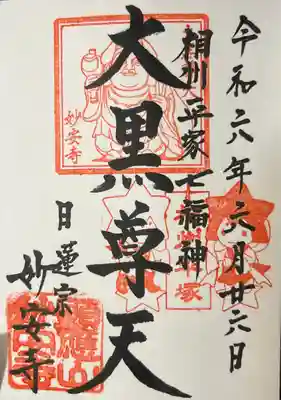 令和六年六月廿六日
相州平塚七福神
大黒尊天
日蓮宗
妙安寺
妙安寺